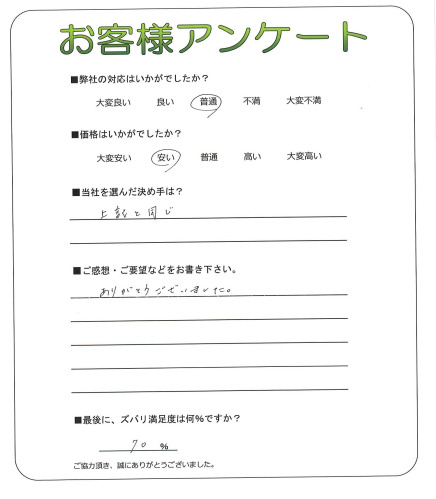 お客様アンケート
■弊社の対応はいかがでしたか？
大変良い 良い 普通 不満 大変不満
■価格はいかがでしたか？
大変安い 安い 普通 高い 大変高い
■当社を選んだ決め手は？
上記と同じ
■ご感想・ご要望などをお書き下さい。
ありがとうございました。
■最後に、ズバリ満足度は何%ですか？
70 %
ご協力頂き、誠にありがとうございました。